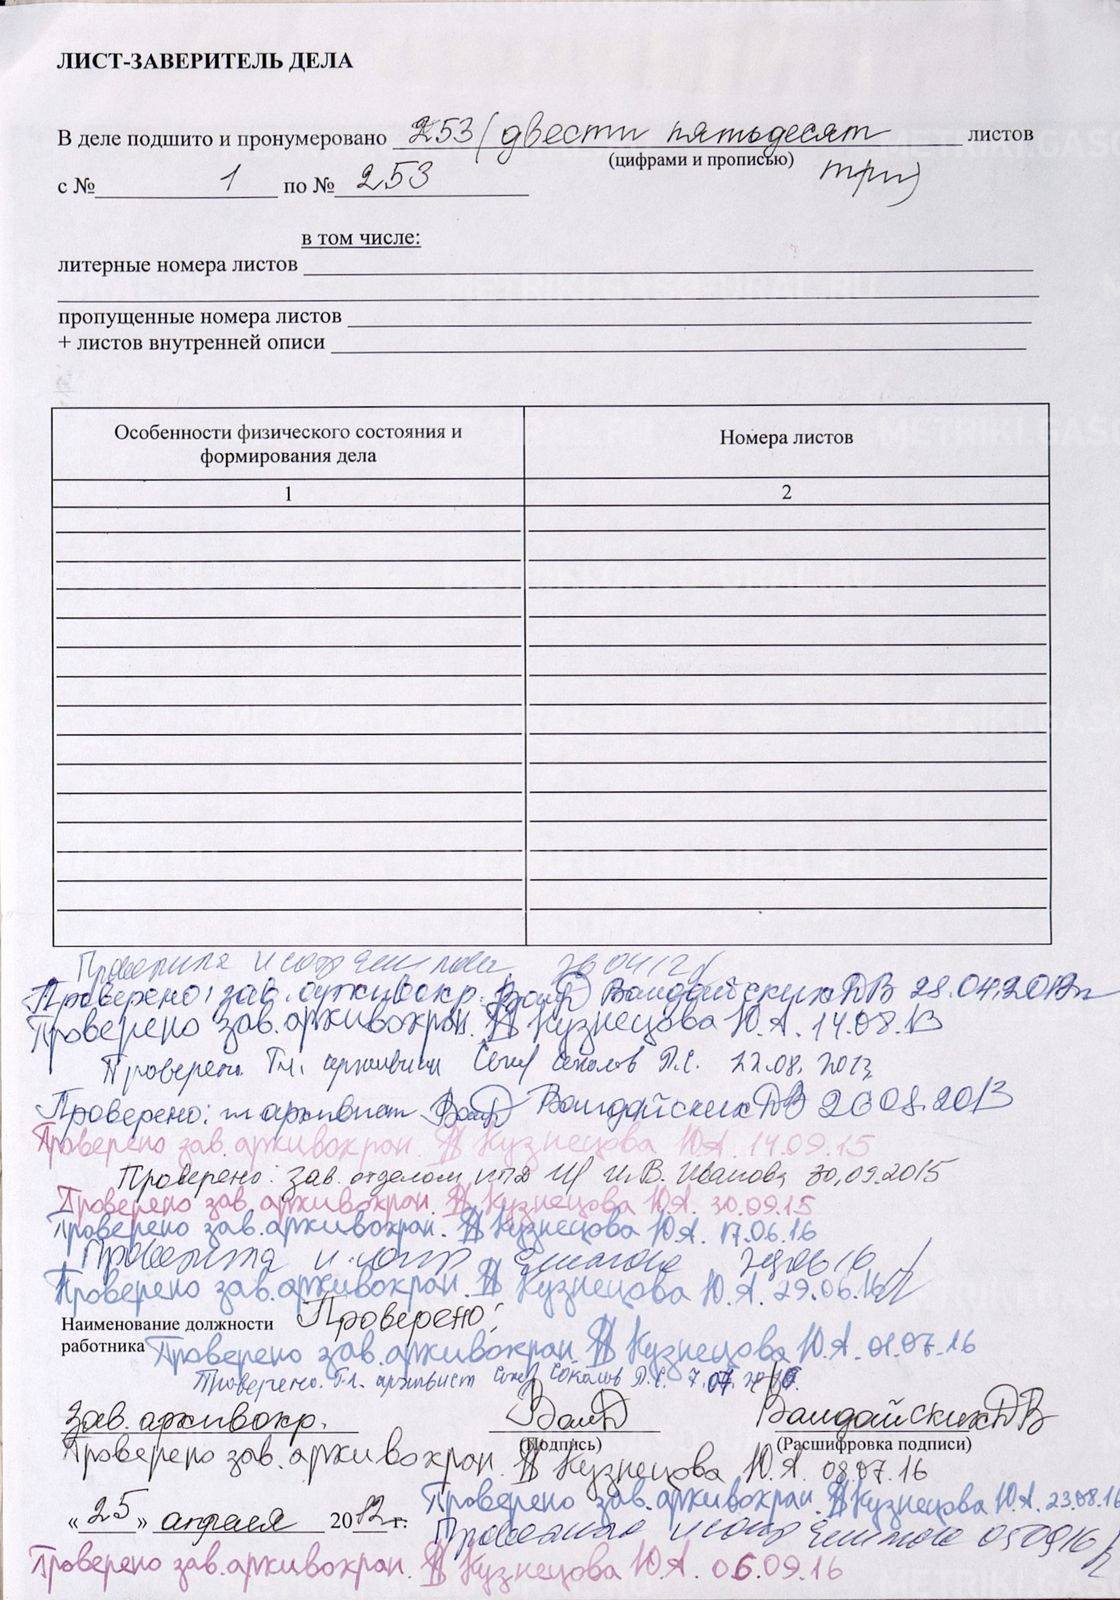 ЛИСТ-ЗАВЕРИТЕЛЬ ДЕЛА
В деле подшито и пронумеровано 253 (двести пятьдесят листов
(цифрами и прописью) три)
с № 1 по № 253
в том числе:
литерные номера листов
пропущенные номера листов
+ листов внутренней описи
Особенности физического состояния и формирования дела
Номера листов
1 2
Проверила
Проверено: зав. архивохр. Валдайских ДВ 28.04.2012
Проверено зав. архивохран. Кузнецова Ю.А. 14.08.13
Проверено Гл. архивист Соколов Д.С. 22.08.2013
Проверено: гл архивист Валдайских ДВ 26 08.2013
Проверено зав. архивохран. Кузнецова Ю.А. 14.09.15
Проверено: зав. отделом Иванова 30.09.2015
Проверено зав. архивохран. Кузнецова Ю.А. 30.09.15
Проверено зав. архивохран. Кузнецова Ю.А. 17.06.16
Проверила
Проверено зав. архивохран. Кузнецова Ю.А. 29.06.16
Наименование должности Проверено:
работника Проверено зав. архивохран. Кузнецова Ю.А. 01.07.16
Проверено. Гл. архивист Соколов Д.С. 7.07.2016.
Зав. архивохр. Валдайских ДВ
(Подпись) (Расшифровка подписи)
Проверено зав. архивохран. Кузнецова Ю.А. 08.07.16
Проверено зав. архивохран. Кузнецова Ю.А. 23.08.16
«25» апреля 2012 г.
Проверено зав. архивохран. Кузнецова Ю.А. 06.09.16
METRIKI.GASO-URAL.RU